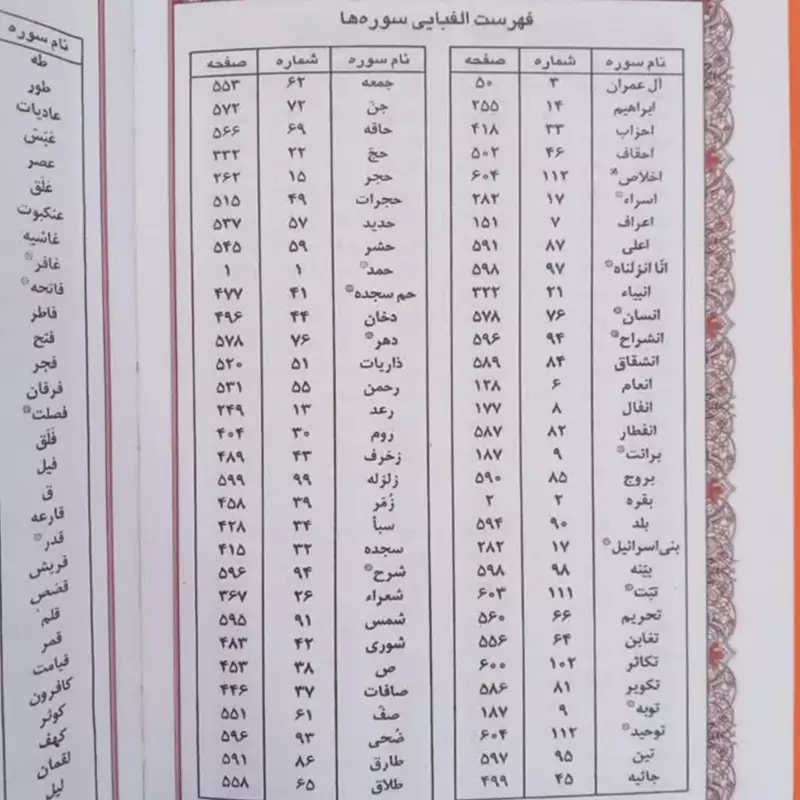 فهرست الفبایی سوره‌ها
نام سوره شماره صفحه
آل عمران ۳ ۵۰
ابراهیم ۱۴ ۲۵۵
احزاب ۳۳ ۴۱۸
احقاف ۴۶ ۵۰۲
اخلاص* ۱۱۲ ۶۰۴
اسراء* ۱۷ ۲۸۲
اعراف ۷ ۱۵۱
اعلی ۸۷ ۵۹۱
انّا انزلناه* ۹۷ ۵۹۸
انبیاء ۲۱ ۳۲۲
انسان* ۷۶ ۵۷۸
انشراح* ۹۴ ۵۹۶
انشقاق ۸۴ ۵۸۹
انعام ۶ ۱۲۸
انفال ۸ ۱۷۷
انفطار ۸۲ ۵۸۷
برائت* ۹ ۱۸۷
بروج ۸۵ ۵۹۰
بقره ۲ ۲
بلد ۹۰ ۵۹۴
بنی‌اسرائیل* ۱۷ ۲۸۲
بیّنه ۹۸ ۵۹۸
تبّت* ۱۱۱ ۶۰۳
تحریم ۶۶ ۵۶۰
تغابن ۶۴ ۵۵۶
تکاثر ۱۰۲ ۶۰۰
تکویر ۸۱ ۵۸۶
توبه* ۹ ۱۸۷
توحید* ۱۱۲ ۶۰۴
تین ۹۵ ۵۹۷
جاثیه ۴۵ ۴۹۹
نام سوره شماره صفحه
جمعه ۶۲ ۵۵۳
جنّ ۷۲ ۵۷۲
حاقه ۶۹ ۵۶۶
حجّ ۲۲ ۳۳۲
حجر ۱۵ ۲۶۲
حجرات ۴۹ ۵۱۵
حدید ۵۷ ۵۳۷
حشر ۵۹ ۵۴۵
حمد* ۱ ۱
حم سجده* ۴۱ ۴۷۷
دخان ۴۴ ۴۹۶
دهر* ۷۶ ۵۷۸
ذاریات ۵۱ ۵۲۰
رحمن ۵۵ ۵۳۱
رعد ۱۳ ۲۴۹
روم ۳۰ ۴۰۴
زخرف ۴۳ ۴۸۹
زلزله ۹۹ ۵۹۹
زُمَر ۳۹ ۴۵۸
سبأ ۳۴ ۴۲۸
سجده ۳۲ ۴۱۵
شرح* ۹۴ ۵۹۶
شعراء ۲۶ ۳۶۷
شمس ۹۱ ۵۹۵
شوری ۴۲ ۴۸۳
ص ۳۸ ۴۵۳
صافات ۳۷ ۴۴۶
صفّ ۶۱ ۵۵۱
ضُحی ۹۳ ۵۹۶
طارق ۸۶ ۵۹۱
طلاق ۶۵ ۵۵۸
نام سوره
طه
طور
عادیات
عَبَسَ
عصر
عَلَق
عنکبوت
غاشیه
غافر*
فاتحه*
فاطر
فتح
فجر
فرقان
فصلت*
فَلَق
فیل
ق
قارعه
قدر*
قریش
قصص
قلم
قمر
قیامت
کافرون
کوثر
کهف
لقمان
لیل